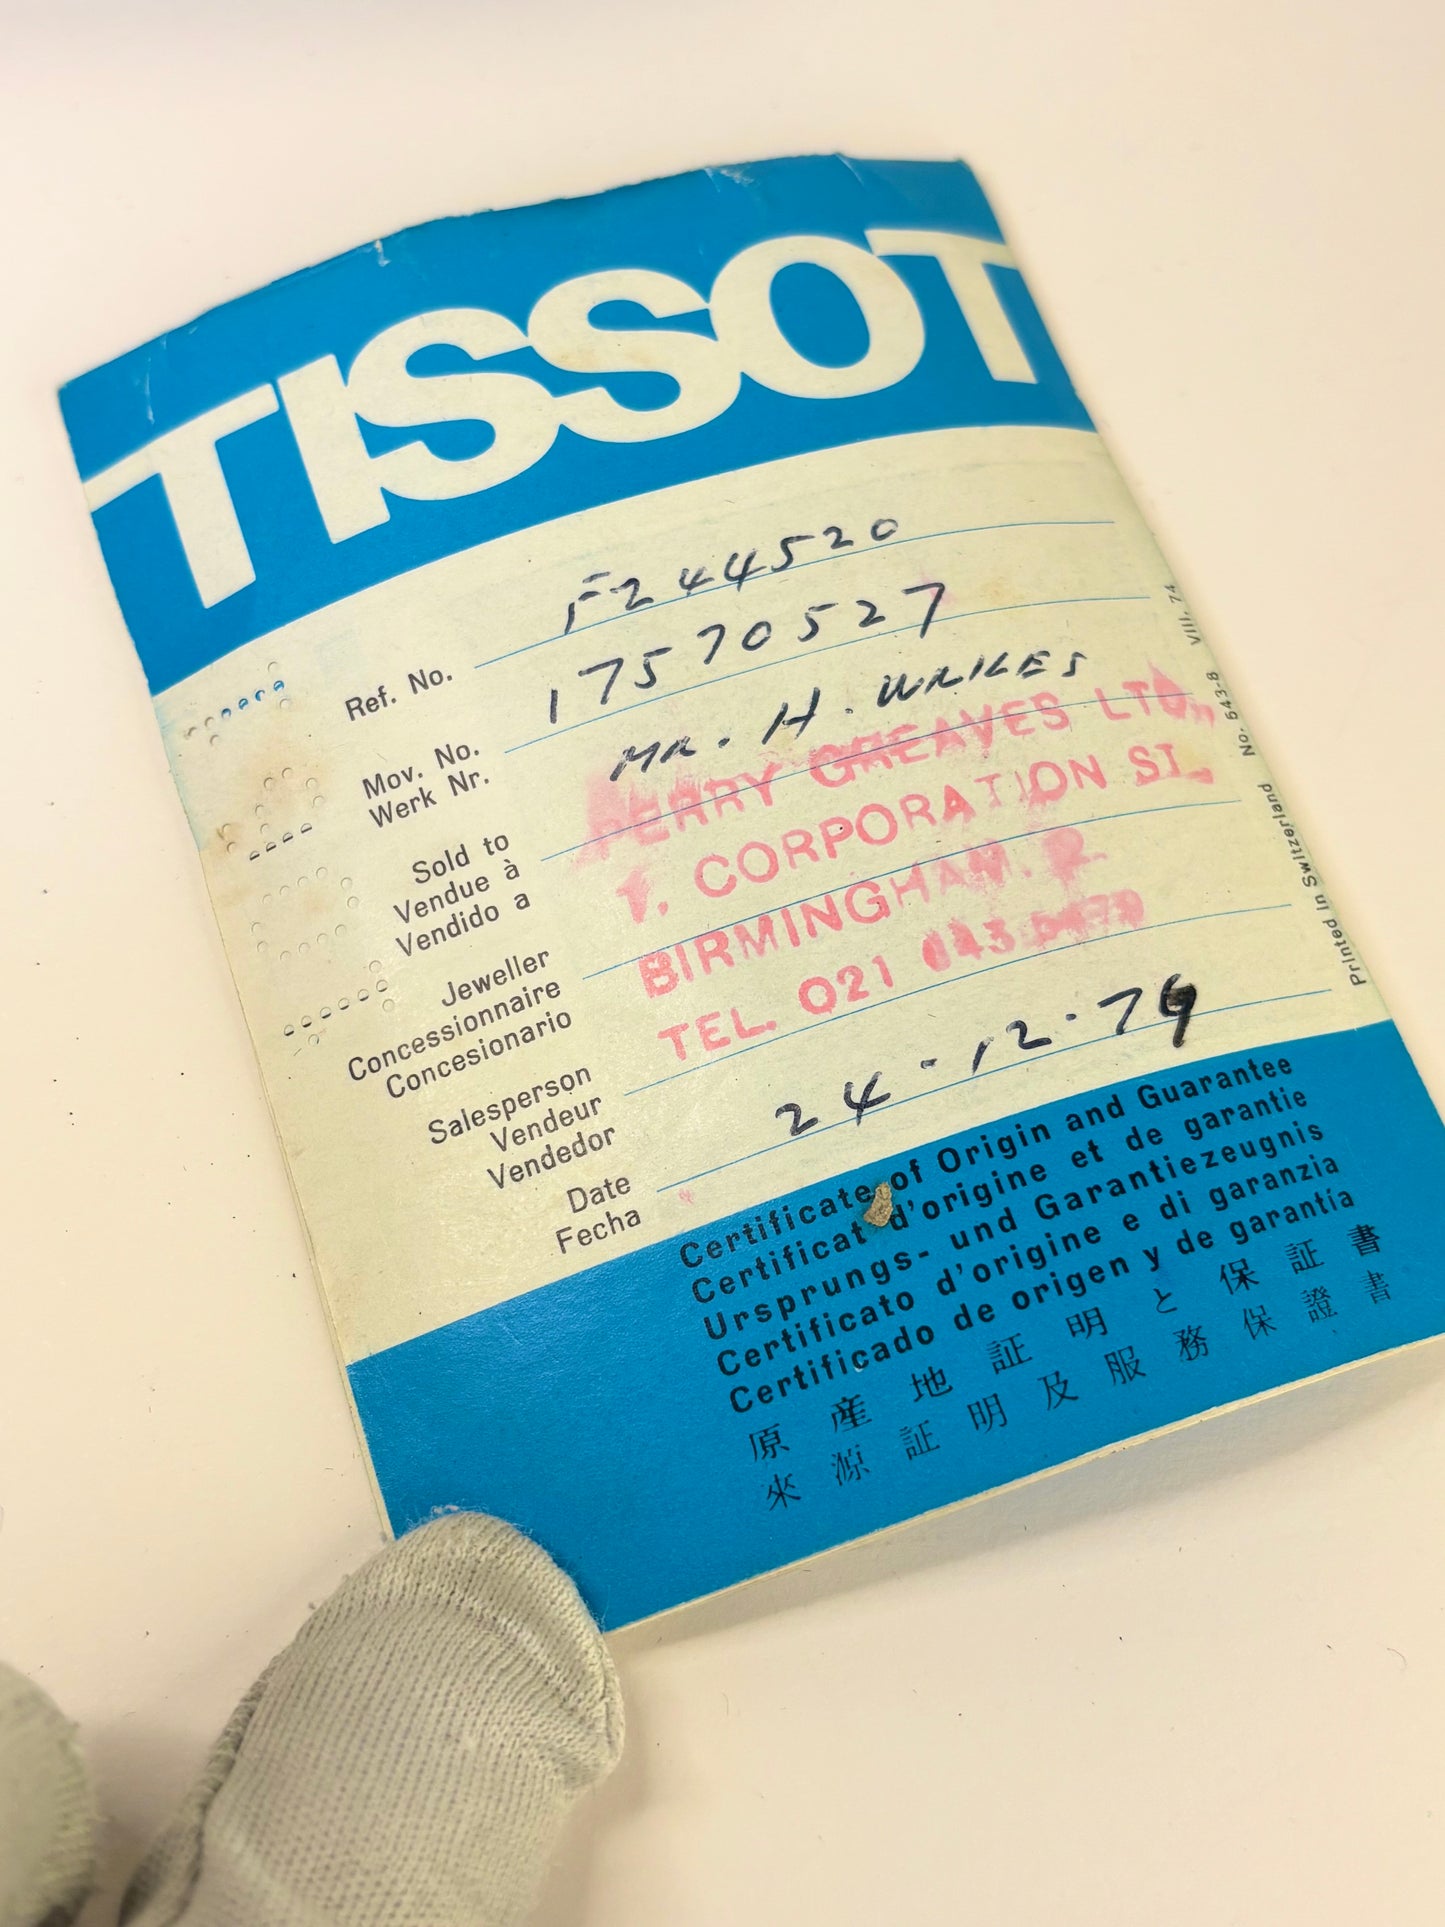 TISSOT
Ref. No. F244520
Mov. No. 17570527
Werk Nr.
Sold to MR. H. WRIKES
Vendue à
Vendido a
PERRY GREAVES LTD.,
1, CORPORATION ST.,
BIRMINGHAM. 2.
TEL. 021
Jeweller
Concessionnaire
Concesionario
Salesperson
Vendeur
Vendedor
Date 24-12-79
Fecha
Printed in Switzerland No. 543-8 VIII. 74
Certificate of Origin and Guarantee
Certificat d'origine et de garantie
Ursprungs- und Garantiezeugnis
Certificato d'origine e di garanzia
Certificado de origen y de garantía
原産地証明と保証書
來源証明及服務保證書